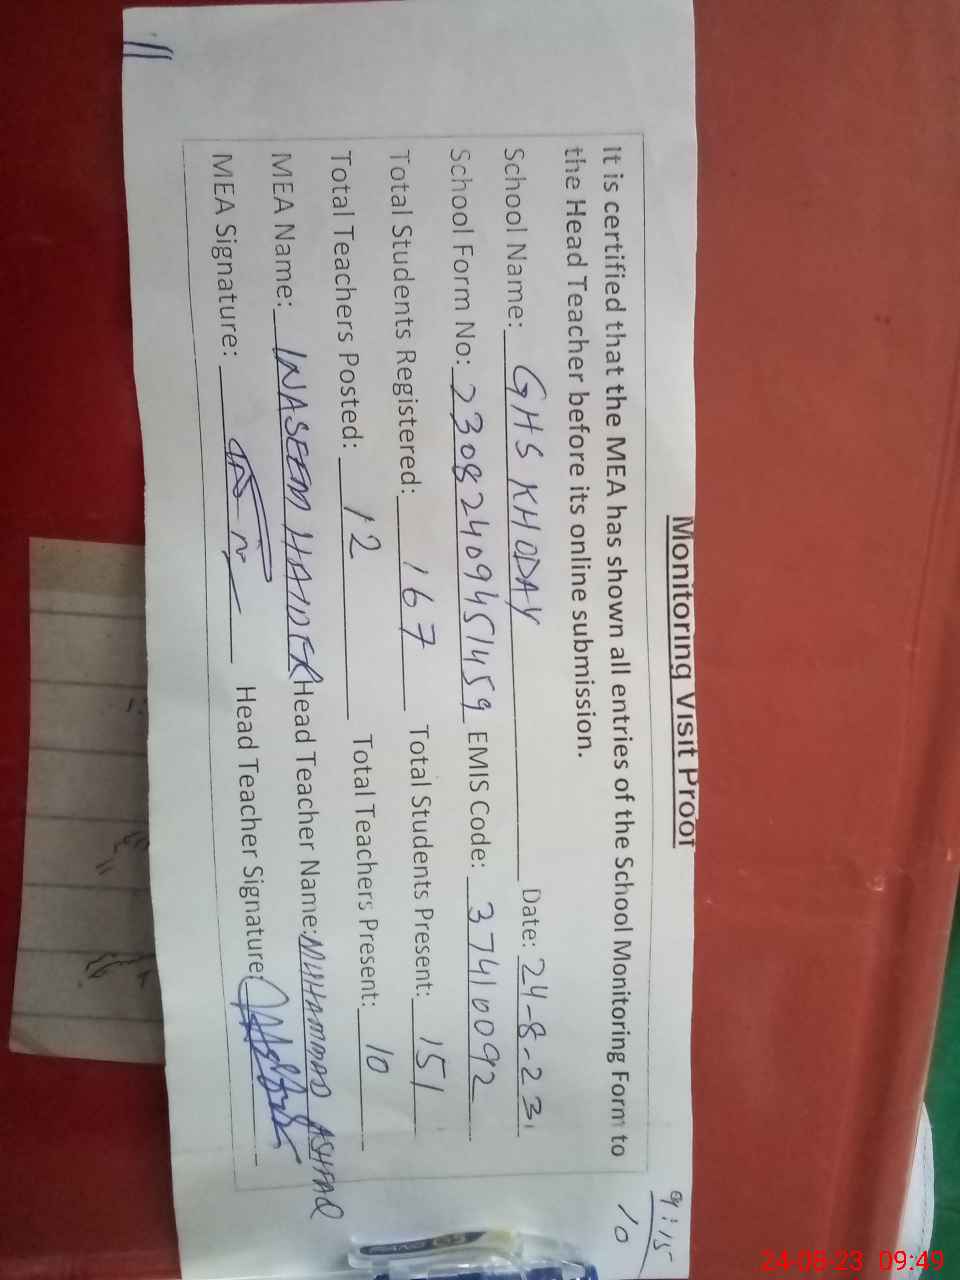 Monitoring Visit Proof
9:15
10
It is certified that the MEA has shown all entries of the School Monitoring Form to
the Head Teacher before its online submission.
School Name: GHS KHODAY Date: 24-8-23
School Form No: 23082409451459 EMIS Code: 37410092
Total Students Registered: 167 Total Students Present: 151
Total Teachers Posted: 12 Total Teachers Present: 10
MEA Name: WASEEM HAIDER Head Teacher Name: MUHAMMAD ASHFAQ
MEA Signature: Head Teacher Signature:
24-08-23 09:49